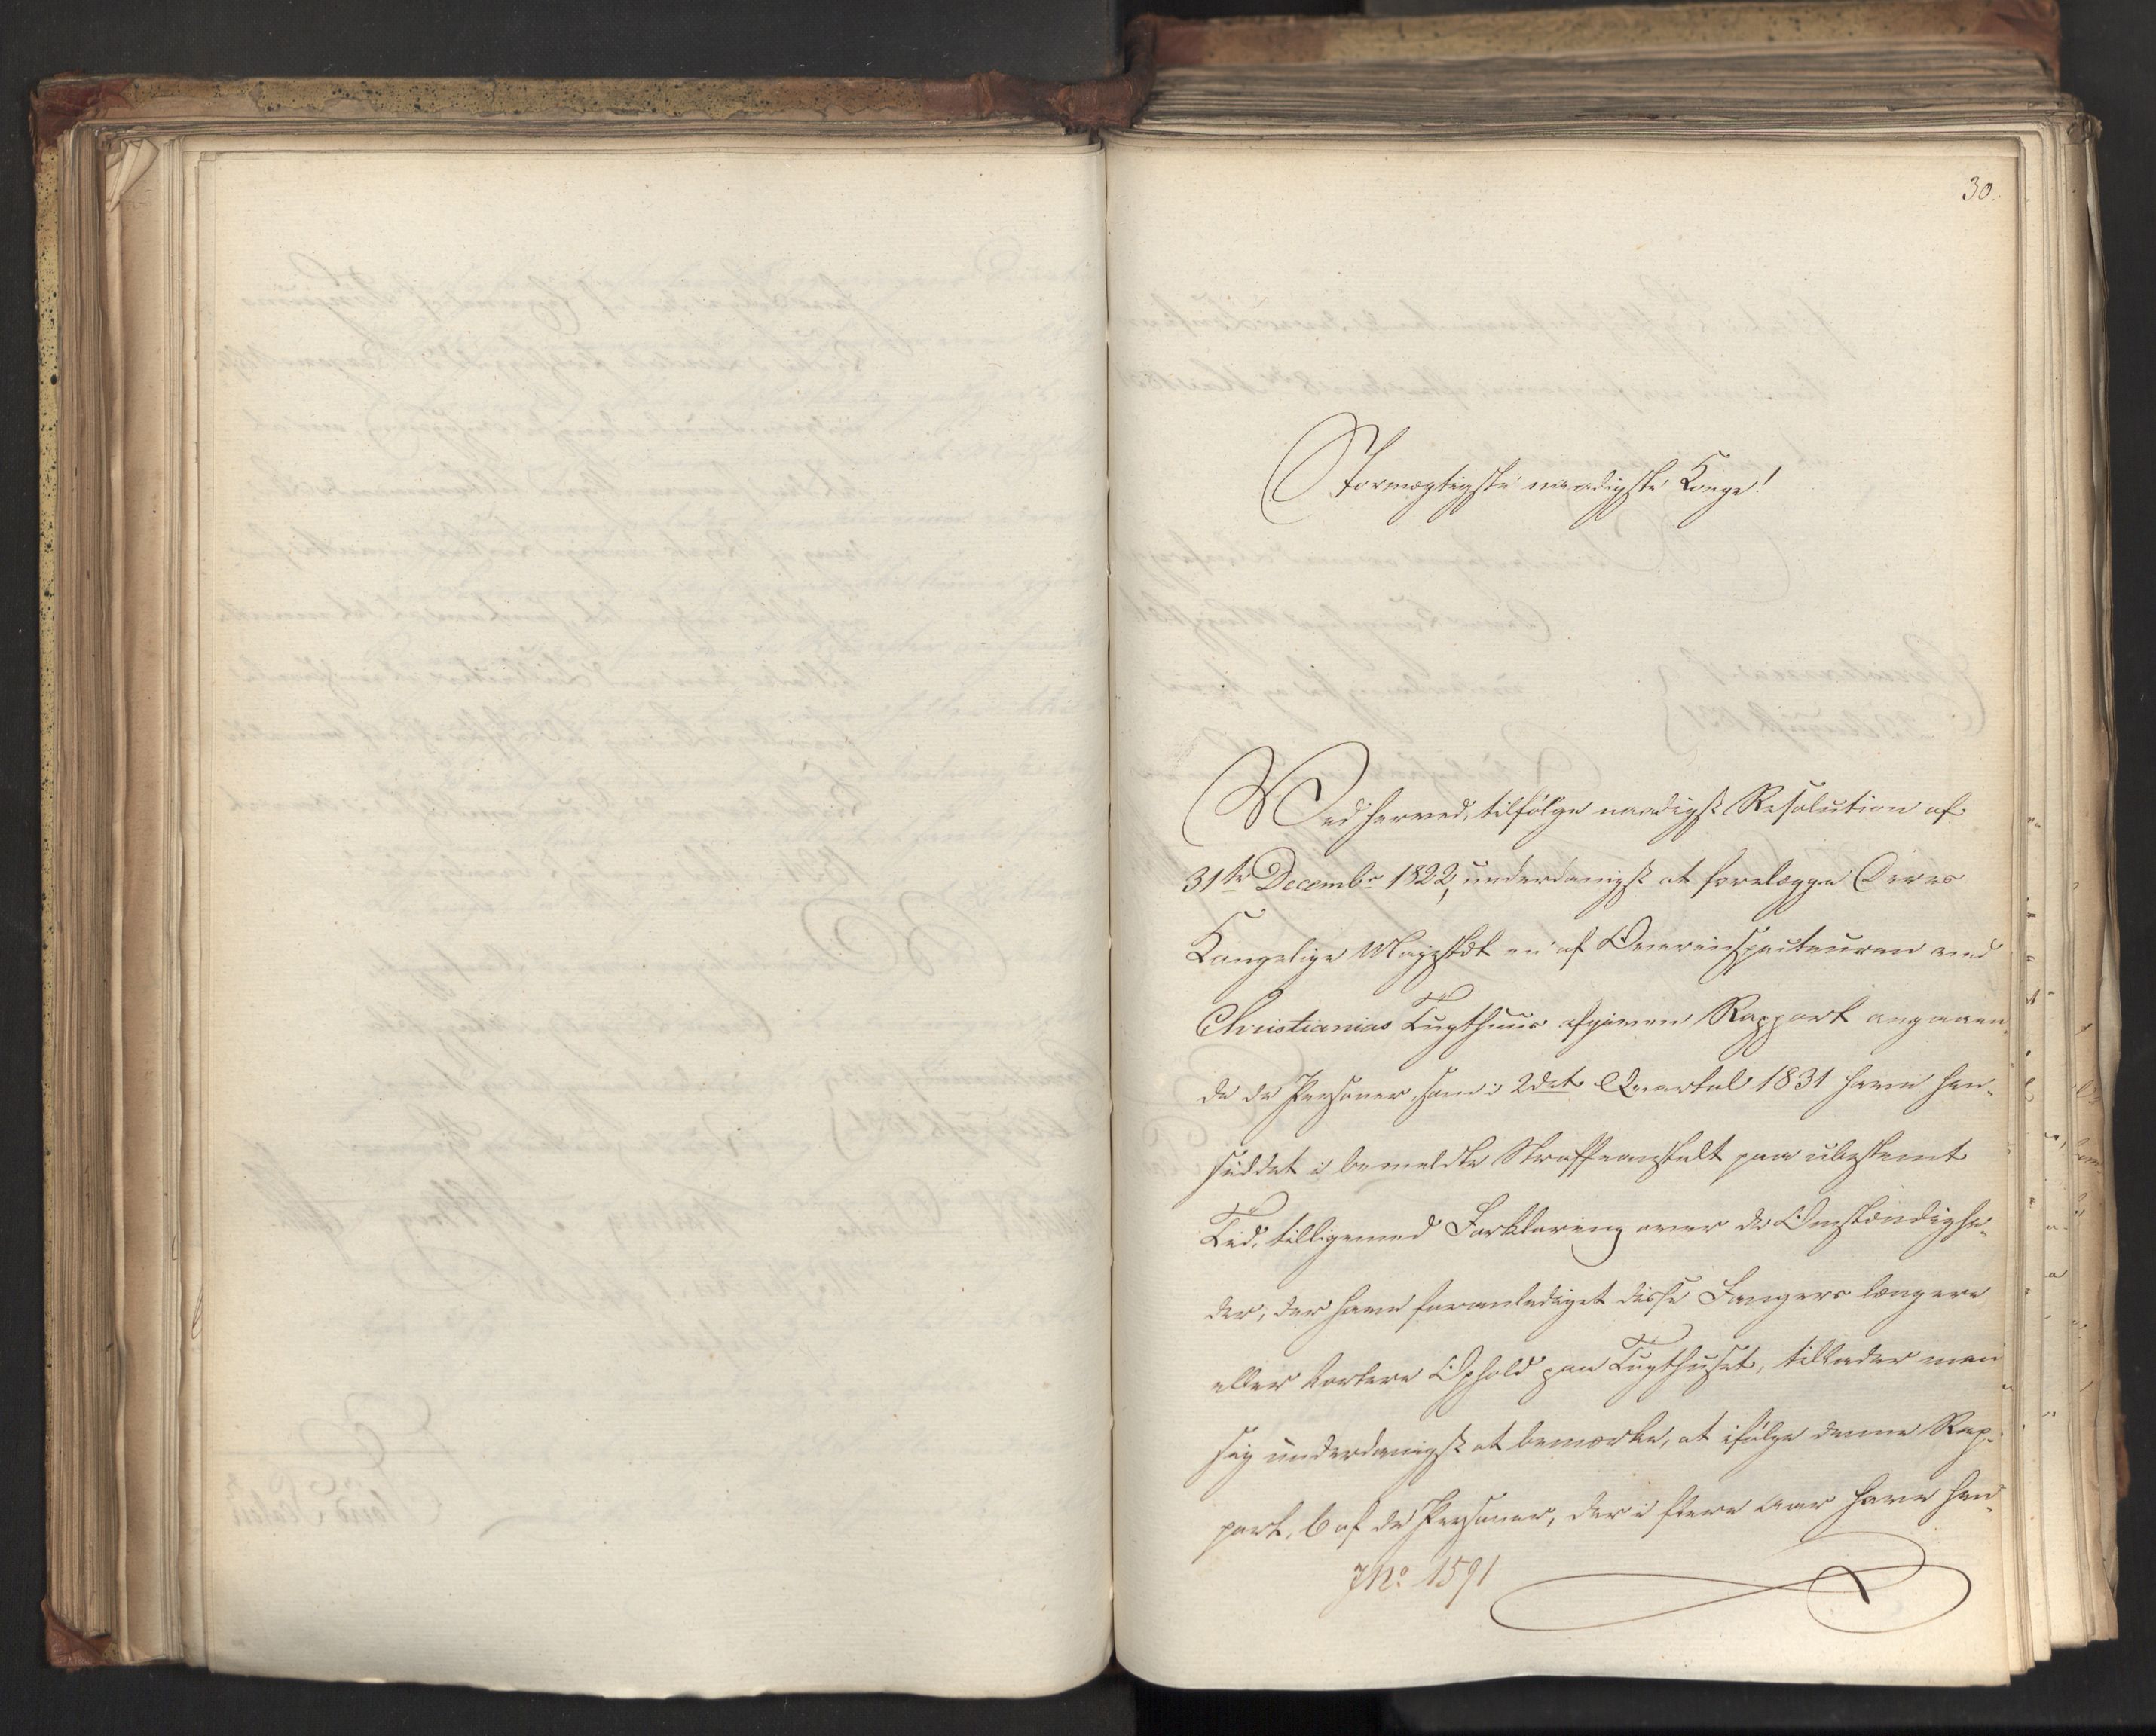 30.
Stormægtigste naadigste Konge!
Ved herved, tilfølge naadigst Resolution af
31te Decembr 1822, underdanigst at forelægge Deres
Kongelige Majestæt en af Overinspecteuren ved
Christianias Tugthuus afgiven Rapport angaaen-
de de Personer, som i 2det Quartal 1831 have hen-
siddet i bemeldte Straffeanstalt paa ubestemt
Tid, tilligemed Forklaring over de Omstændighe-
der, der have foranlediget disse Fangers længere
eller kortere Ophold paa Tugthuset, tillader man
sig underdanigst at bemærke, at ifølge denne Rap-
port, 6 af de Personer, der i flere Aar have hen-
JNo 1591